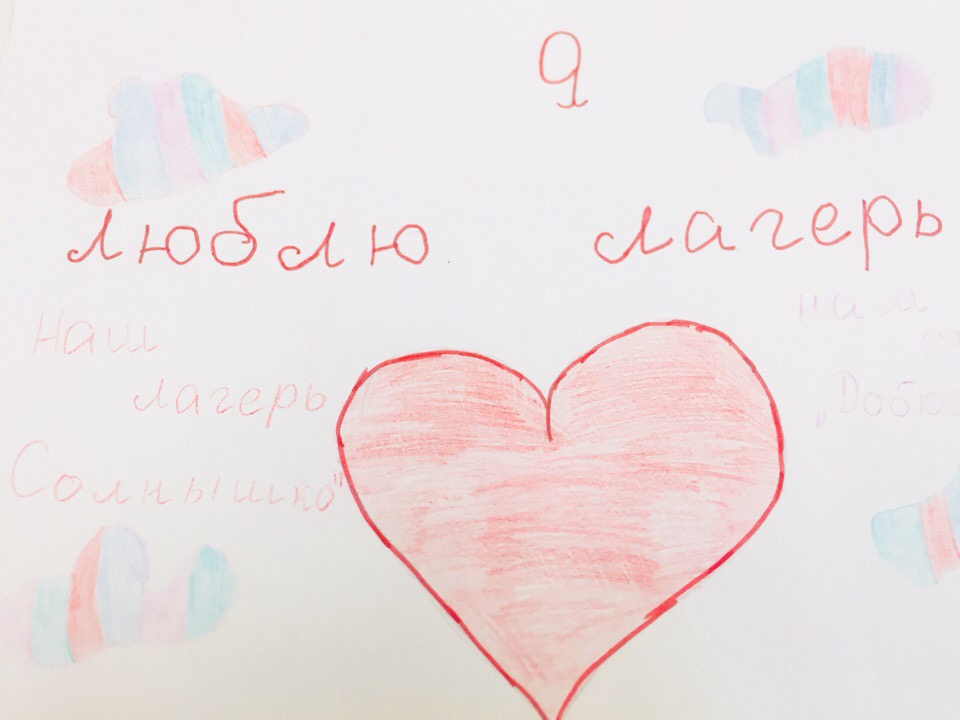 Я
люблю лагерь
Наш
лагерь
Солнышко"
нам
„Добро